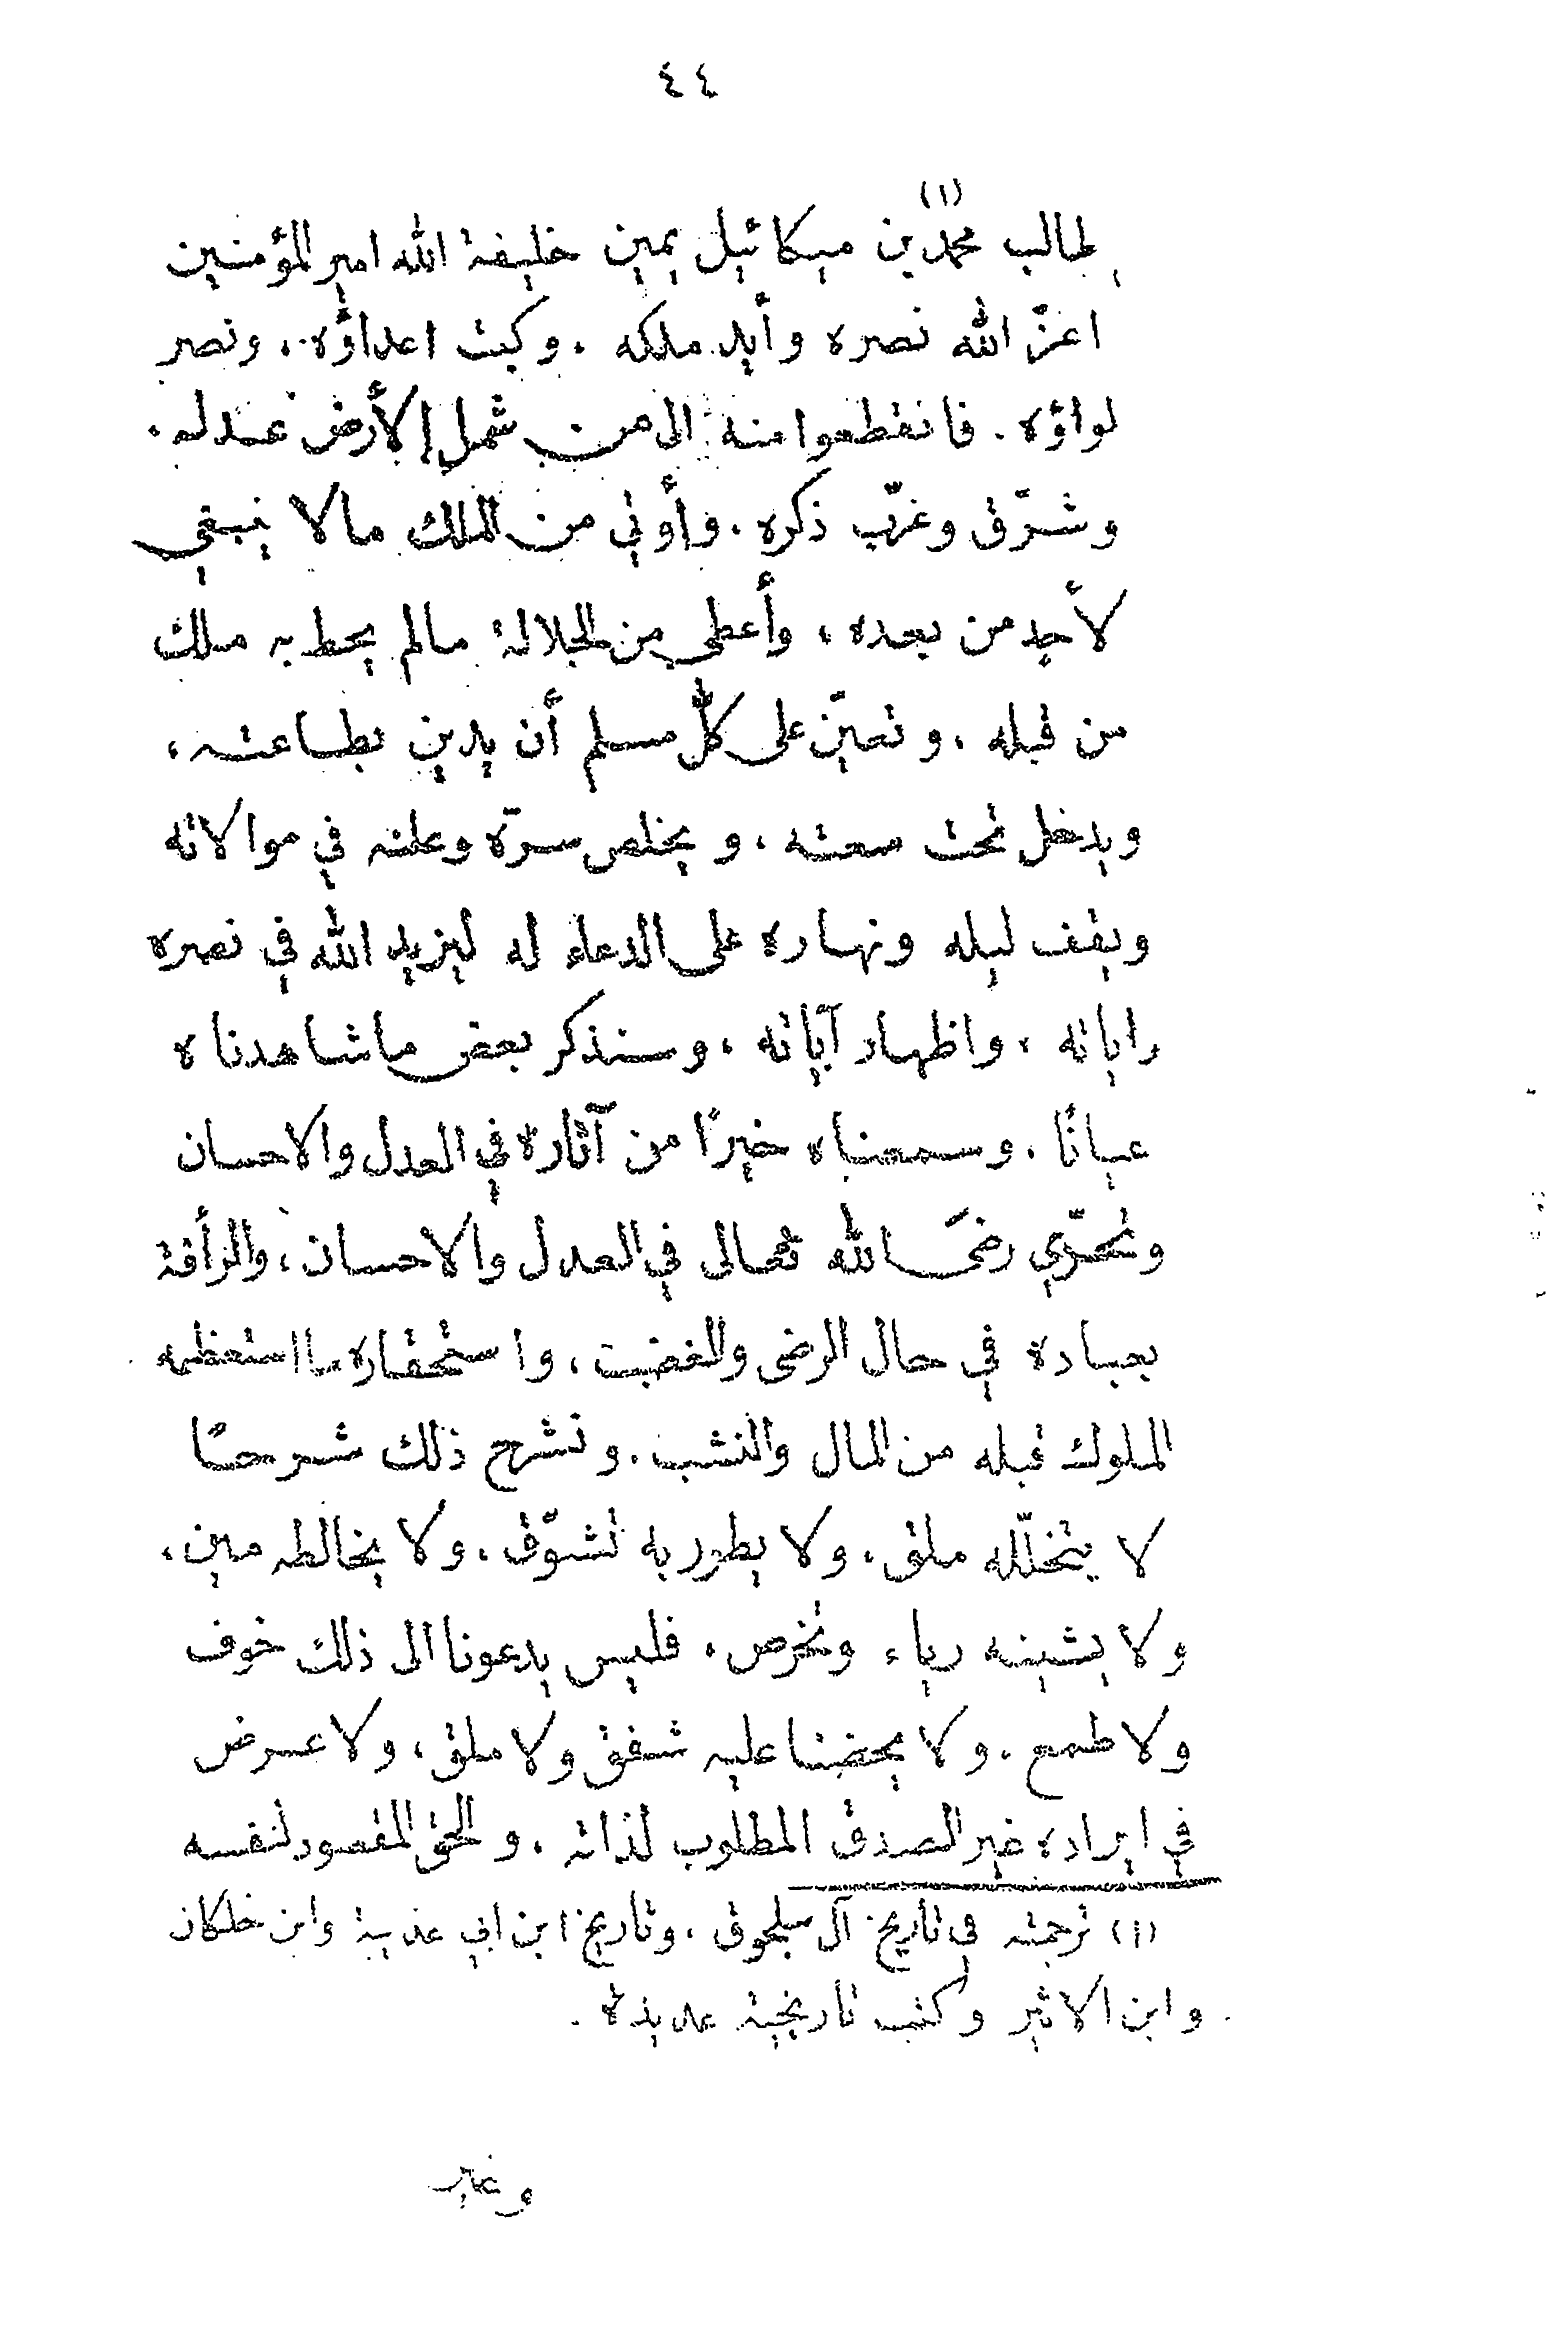 ٤٤
طالب محمّد(١) بن ميكائيل يمين خليفة الله امير المؤمنين
اعزّ الله نصره وأيد ملكه ، وكبت اعداؤه ، ونصر
لواؤه . فانقطعوا منه الى من شمل الأرض عدله .
وشرّق وغرّب ذكره . وأوتي من الملك مالا ينبغي
لأحدٍ من بعده ، وأعطى من الجلالة مالم يحط به ملك
من قبله ، وتعيّن على كلّ مسلم أن يدين بطاعته ،
ويدخل تحت سعته ، ويخلص سرّه وعلنه في موالاته
ويقف ليله ونهاره على الدعاء له ليزيد الله في نصره
راياته ، واظهار آياته ، وسنذكر بعض ما شاهدناه
عيانًا . وسمعناه خبرًا من آثاره في العدل والاحسان
وتحرّي رضى الله تعالى في العدل والاحسان ، والرأفة
بعباده في حال الرضى والغضب ، واستحقاره ما استعظمه
الملوك قبله من المال والنشب . ونشرح ذلك شرحًا
لا يتخلّله ملق ، ولا يطور به تشوّق ، ولا يخالطه مين ،
ولا يشينه رياء وتخرص ، فليس يدعونا الى ذلك خوف
ولا طمع . ولا يحضنا عليه شفق ولا ملق ، ولا عرض
في ايراده غير الصدق المطلوب لذاته ، والحق المقصود لنفسه
(١) ترجمته في تاريخ آل سلجوق ، وتاريخ ابن ابي عذيبة وابن خلكان
وابن الاثير وكتب تاريخية عديدة .
وغير